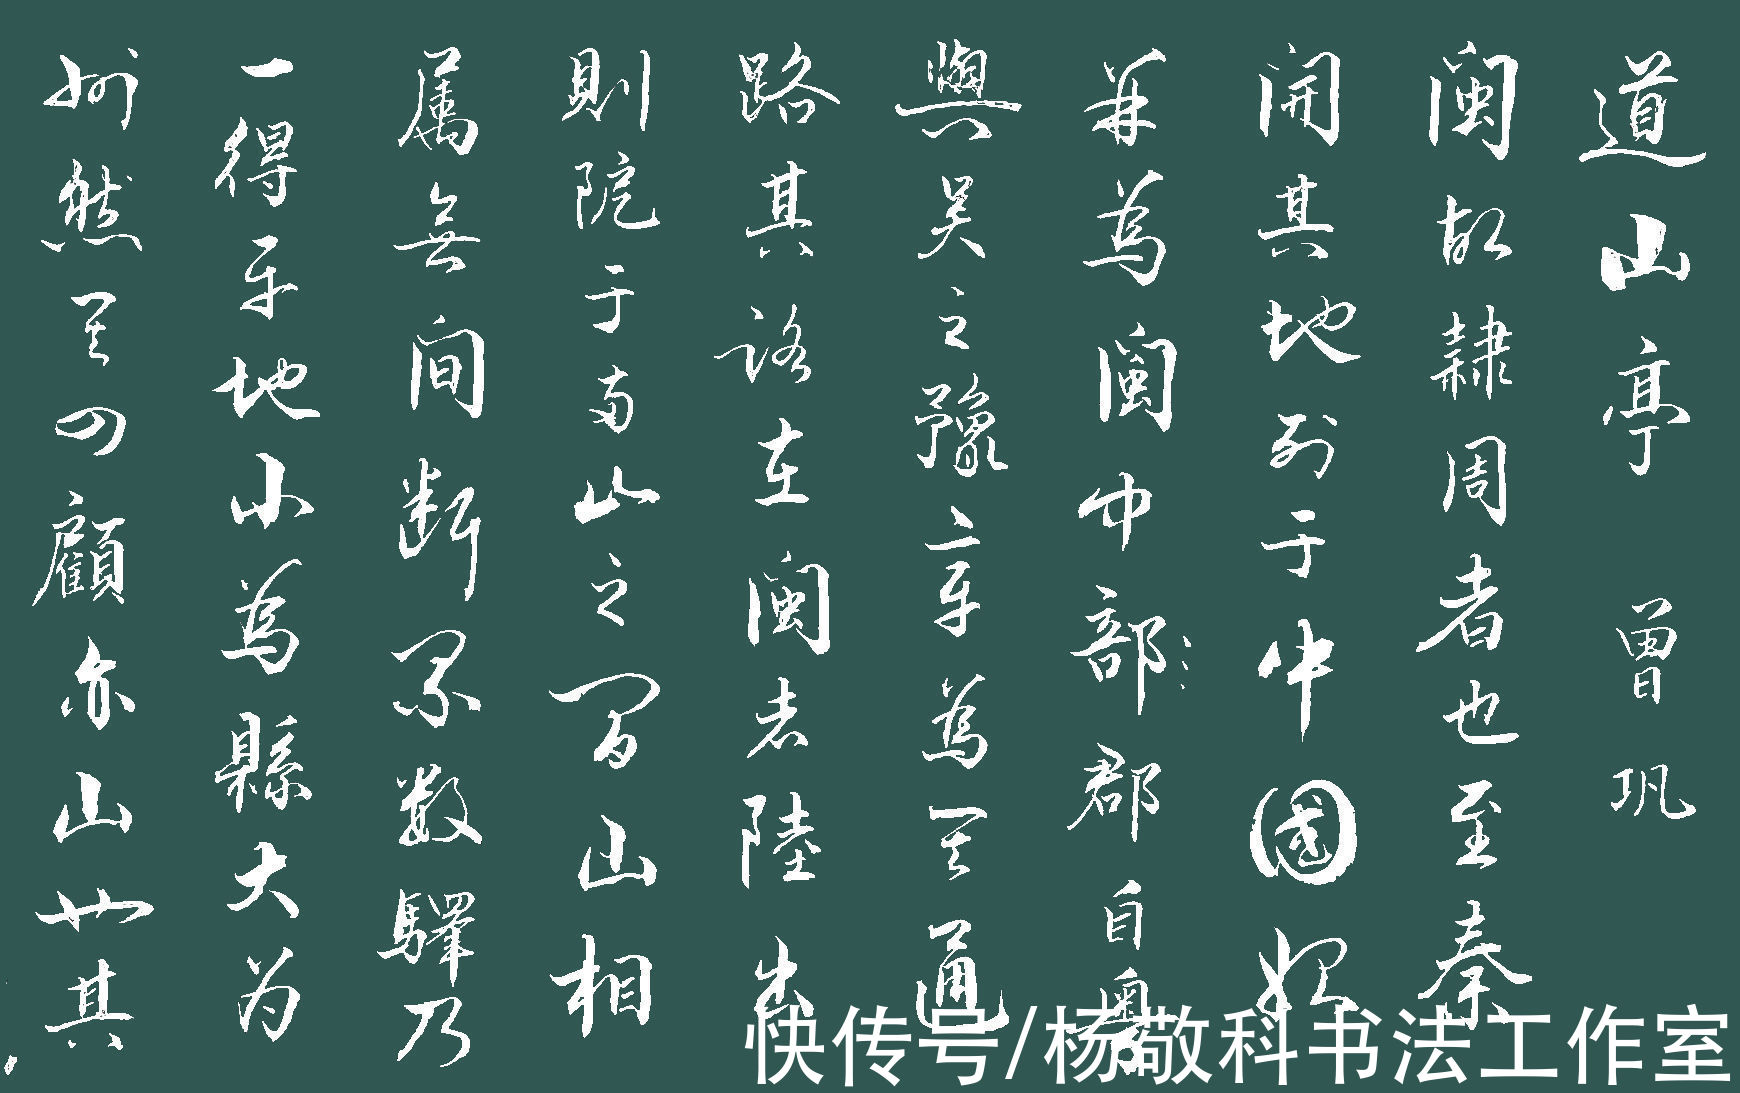 道山亭 曾巩
闽故隷周者也至秦
开其地列于中國始
并為闽中部郡自粤
與吴之豫章為其通
路其路在闽者陸出
則阸于两山之间山相
属无间断累数驛乃
一得平地小為縣大为
州然其四顧亦山也其
快传号/杨敬科书法工作室